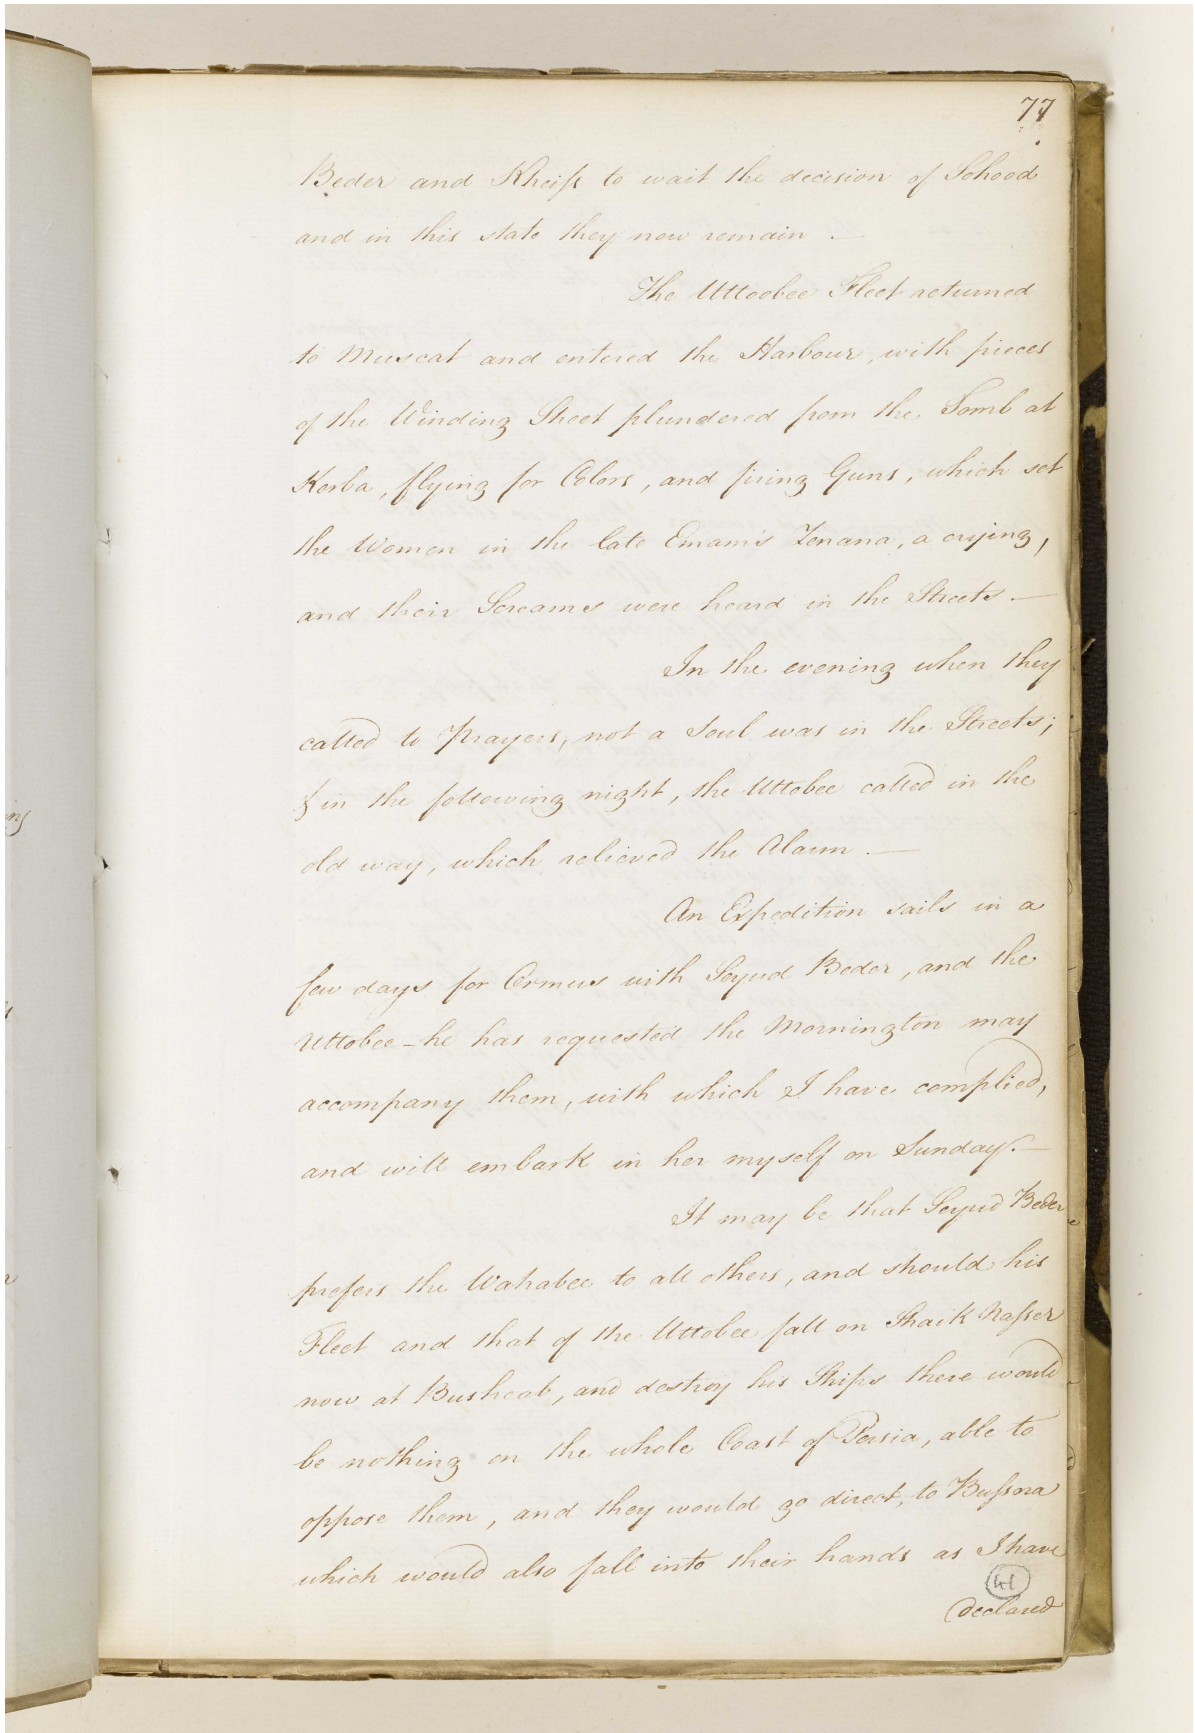 77
Beder and Kheiſs to wait the decision of Sohood
and in this state they now remain . —
The Uttoobee Fleet returned
to Muscat and entered the Harbour, with pieces
of the Winding Sheet plundered from the Tomb at
Korba, flying for Colors, and firing Guns, which set
the Women in the late Emam's Zenana, a crying,
and their Screams were heard in the Streets. —
In the evening when they
called to Prayers, not a Soul was in the Streets;
& in the following night, the Uttobee called in the
old way, which relieved the Alarm . —
An Expedition sails in a
few days for Ormus with Seyud Beder, and the
Uttobee – he has requested the Mornington may
accompany them, with which I have complied,
and will embark in her myself on Sunday. —
It may be that Seyud Beder
prefers the Wahabee to all others, and should his
Fleet and that of the Uttobee fall on Shaik Naſser
now at Busheab, and destroy his Ships there would
be nothing on the whole Coast of Persia, able to
oppose them, and they would go direct, to Buſsna
which would also fall into their hands as I have
41
declared